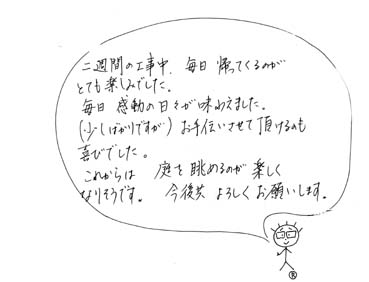 二週間の工事中、毎日 帰ってくるのが
とても楽しみでした。
毎日 感動の日々が味わえました。
(少しばかりですが) お手伝いさせて頂けるのも
喜びでした。
これからは 庭を眺めるのが楽しく
なりそうです。 今後共 よろしくお願いします。
®